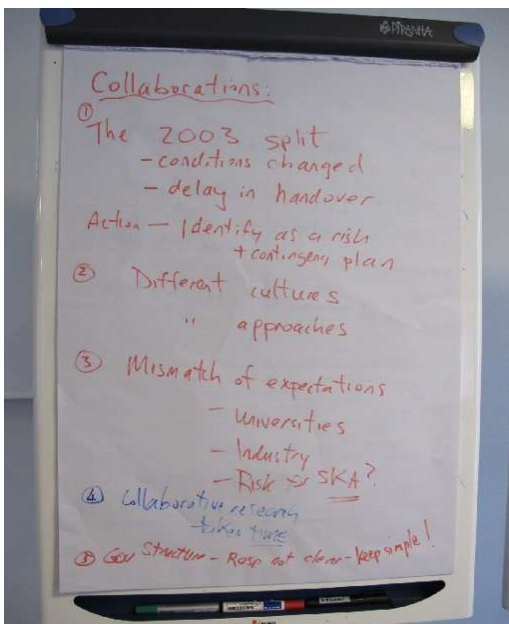 PIRANHA
Collaborations:
① The 2003 split
- conditions changed
- delay in handover
Action - Identify as a risk
+ contingency plan
② Different cultures
" approaches
③ Mismatch of expectations
- Universities
- Industry
- Risk for SKA?
④ Collaborative research
takes time
⑤ Gov Structure - Resp not clear - keep simple!